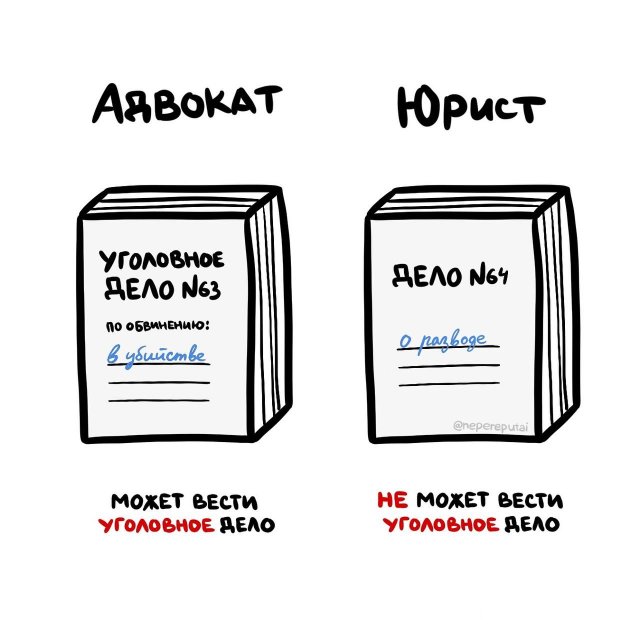 Адвокат
Юрист
УГОЛОВНОЕ
ДЕЛО №63
ПО ОБВИНЕНИЮ:
в убийстве
ДЕЛО №64
о разводе
@nepereputai
МОЖЕТ ВЕСТИ
УГОЛОВНОЕ ДЕЛО
НЕ МОЖЕТ ВЕСТИ
УГОЛОВНОЕ ДЕЛО